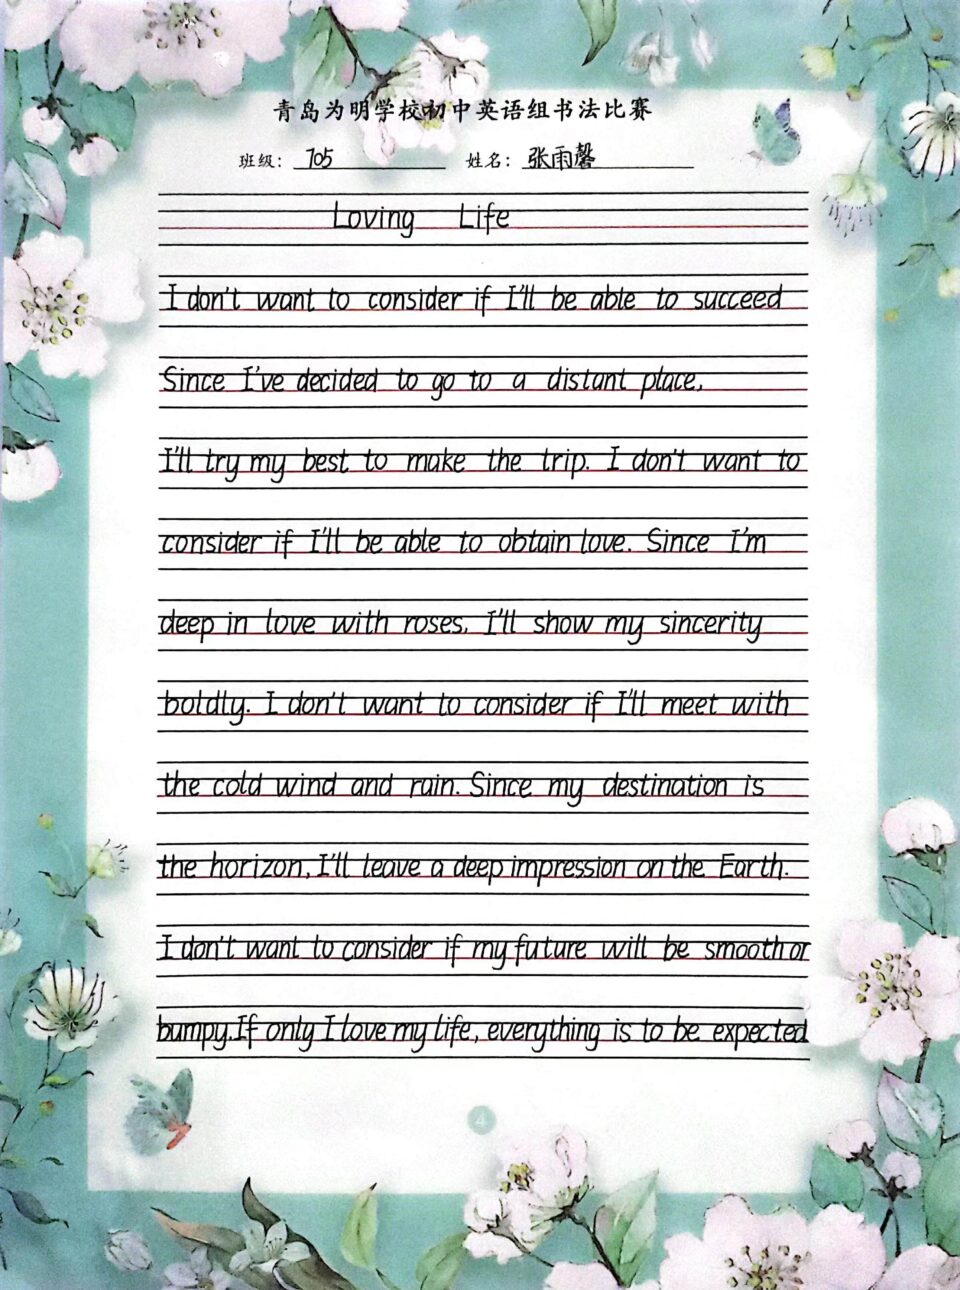 青岛为明学校初中英语组书法比赛
班级: 705 姓名: 张雨馨
Loving Life
I don't want to consider if I'll be able to succeed
Since I've decided to go to a distant place,
I'll try my best to make the trip. I don't want to
consider if I'll be able to obtain love. Since I'm
deep in love with roses, I'll show my sincerity
boldly. I don't want to consider if I'll meet with
the cold wind and rain. Since my destination is
the horizon, I'll leave a deep impression on the Earth.
I don't want to consider if my future will be smooth or
bumpy. If only I love my life, everything is to be expected
4